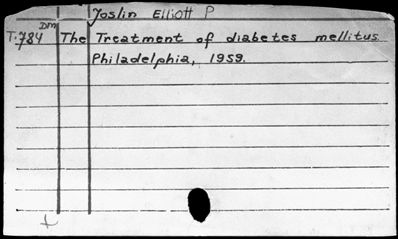 Joslin Elliott P
Dm
T.784 The Treatment of diabetes mellitus
Philadelphia, 1959.